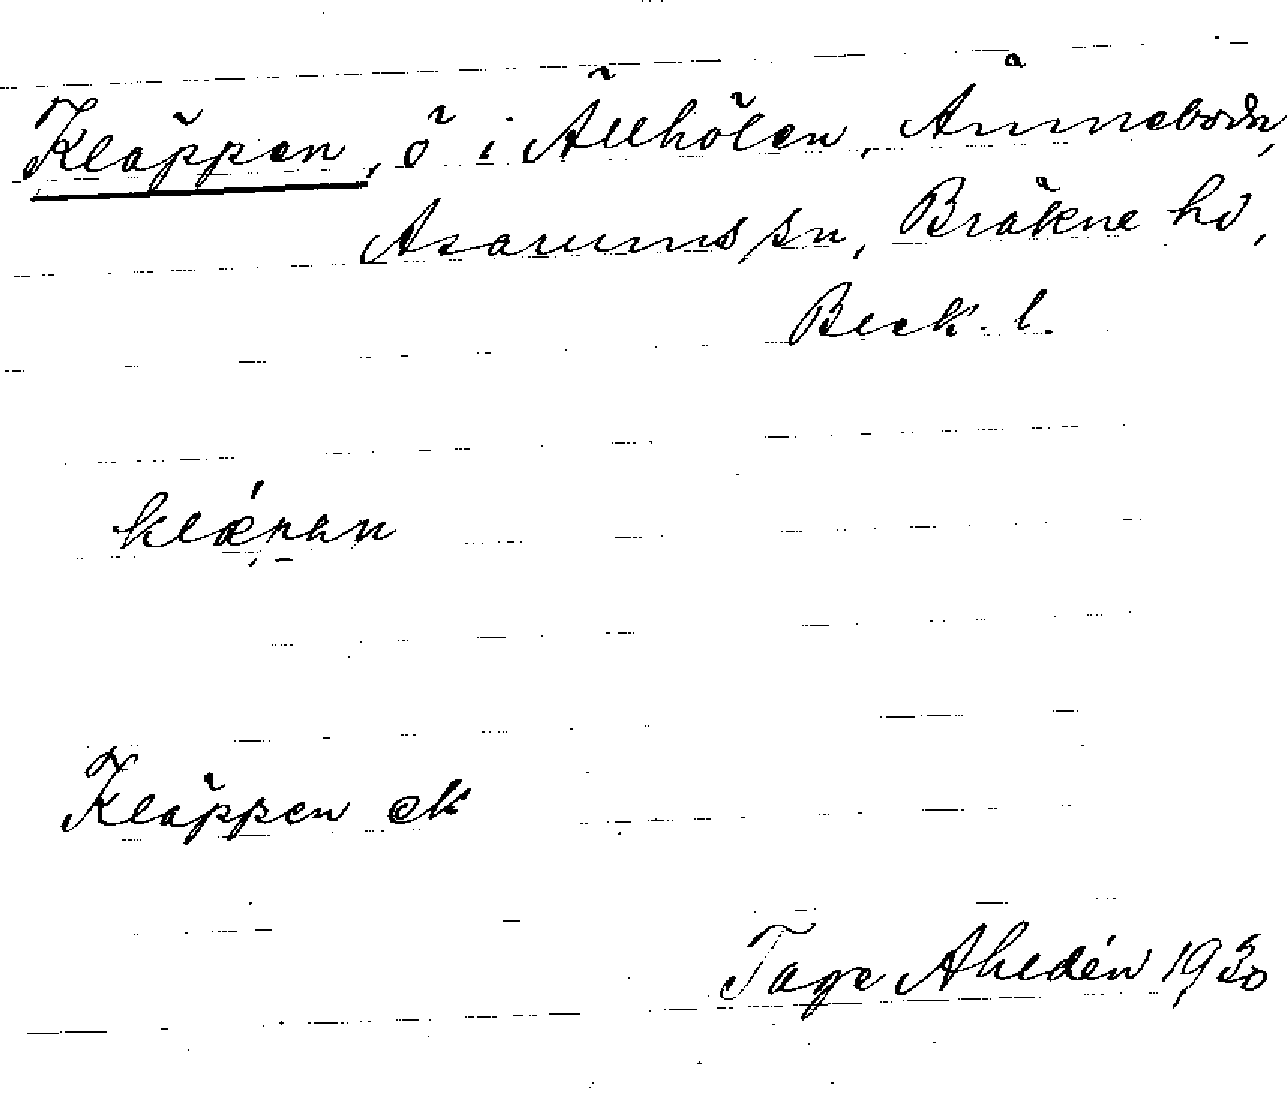 Kläppen, ö i Ällhölen, Ånneboda,
Asarums sn, Bräkne hd,
Bleck. l.
klǽpən
Kläppen ek
Tage Ahldén 1930